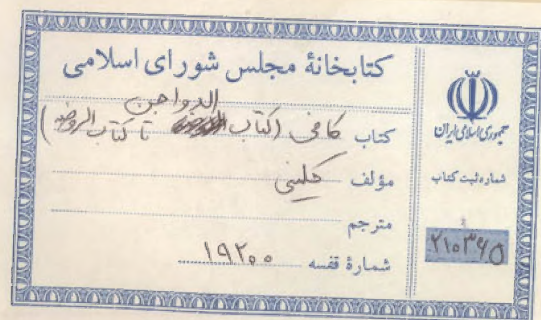 کتابخانهٔ مجلس شورای اسلامی
الدواجن
کتاب کافی (کتاب تا کتاب الروضه)
مؤلف کلینی
مترجم
شمارهٔ قفسه ۱۹۲۰۰
جمهوری اسلامی ایران
شماره ثبت کتاب
۲۱۰۳۶۵